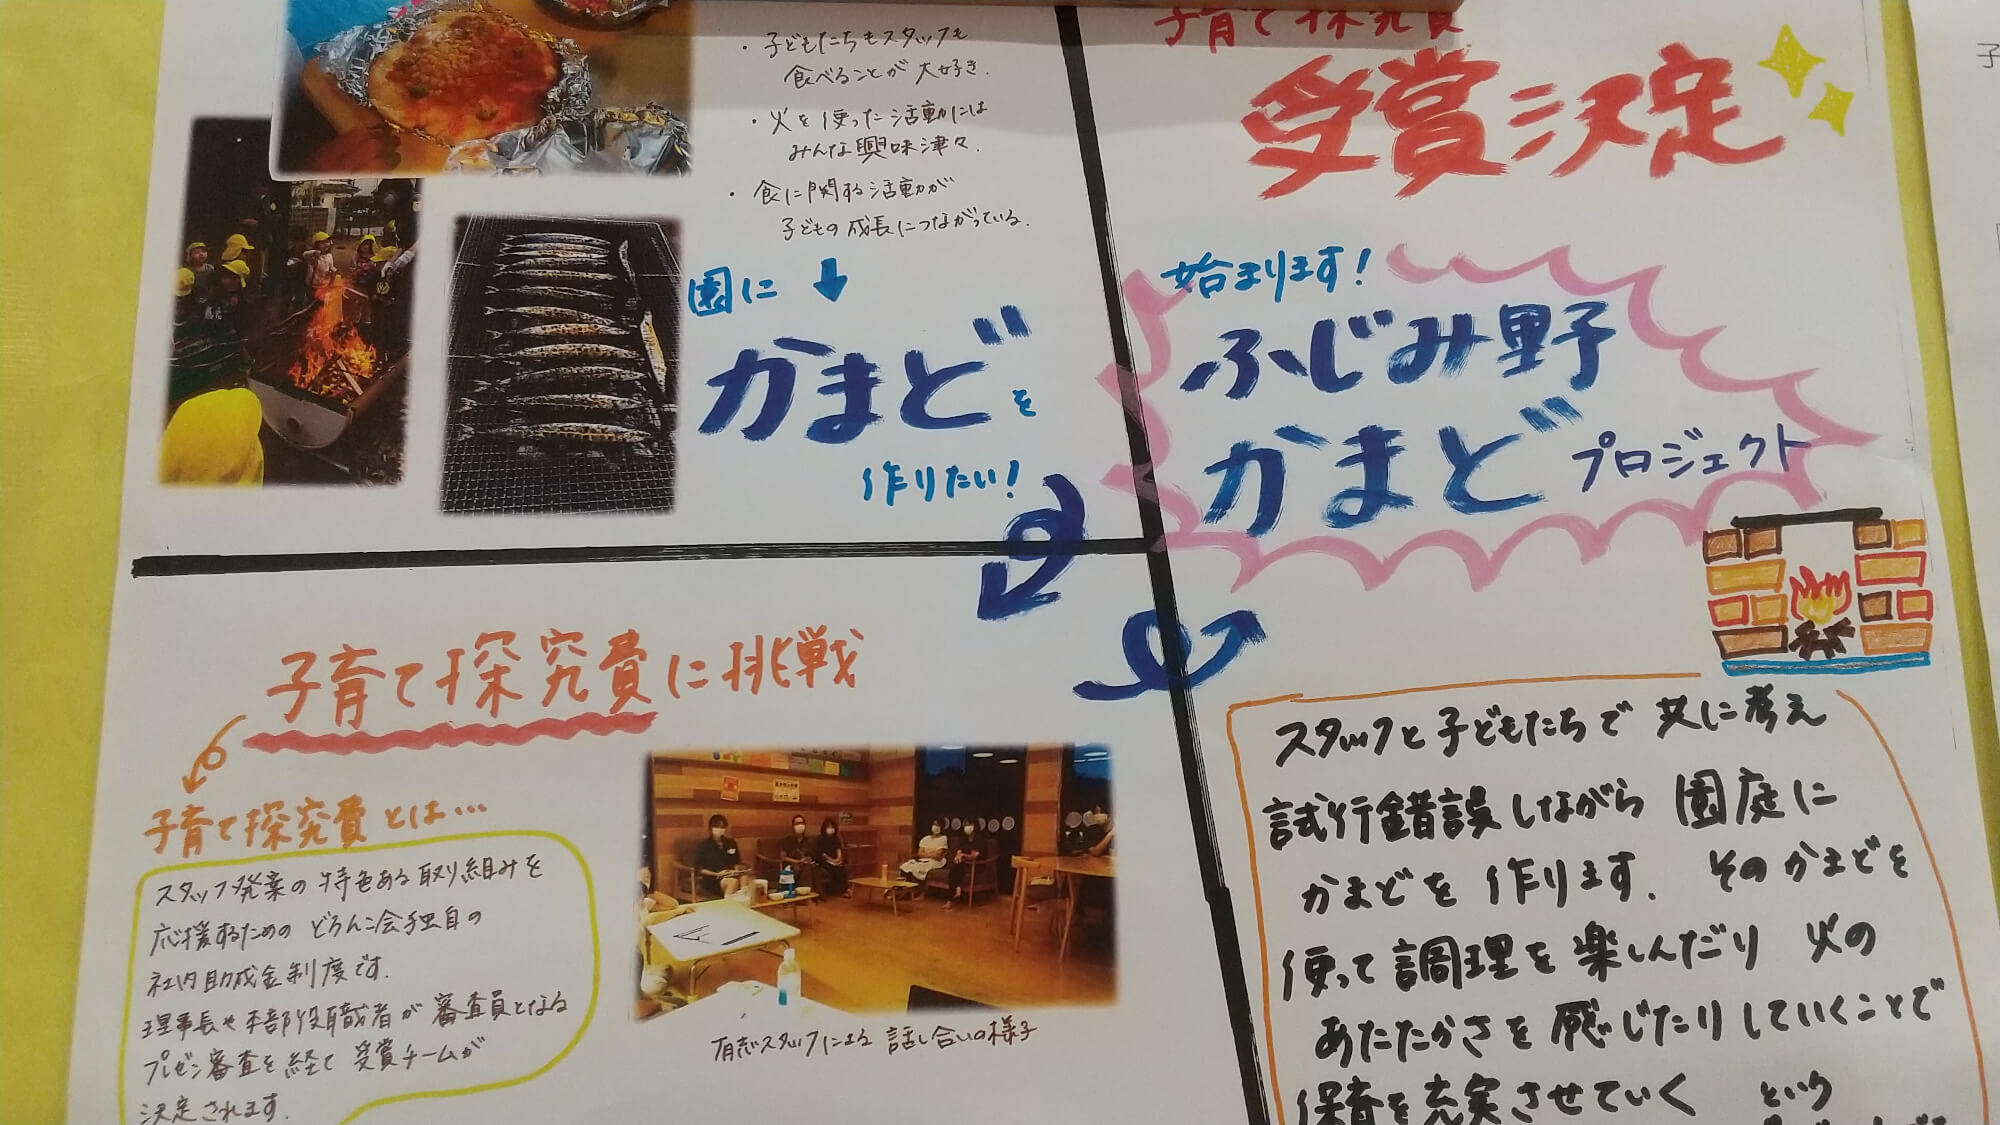 ・子どもたちもスタッフも
食べることが大好き.
・火を使った活動には
みんな興味津々.
・食に関する活動が
子どもの成長につながっている.
園に
かまどを
作りたい!
子育て探究費
受賞決定
始まります!
ふじみ野
かまどプロジェクト
子育て探究費に挑戦
子育て探究費とは…
スタッフ発案の特色ある取り組みを
応援するためのどろんこ会独自の
社内助成金制度です.
理事長や本部役職者が審査員となる
プレゼン審査を経て受賞チームが
決定されます.
有志スタッフによる話し合いの様子
スタッフと子どもたちで共に考え
試行錯誤しながら園庭に
かまどを作ります. そのかまどを
使って調理を楽しんだり火の
あたたかさを感じたりしていくことで
保育を充実させていく という
子